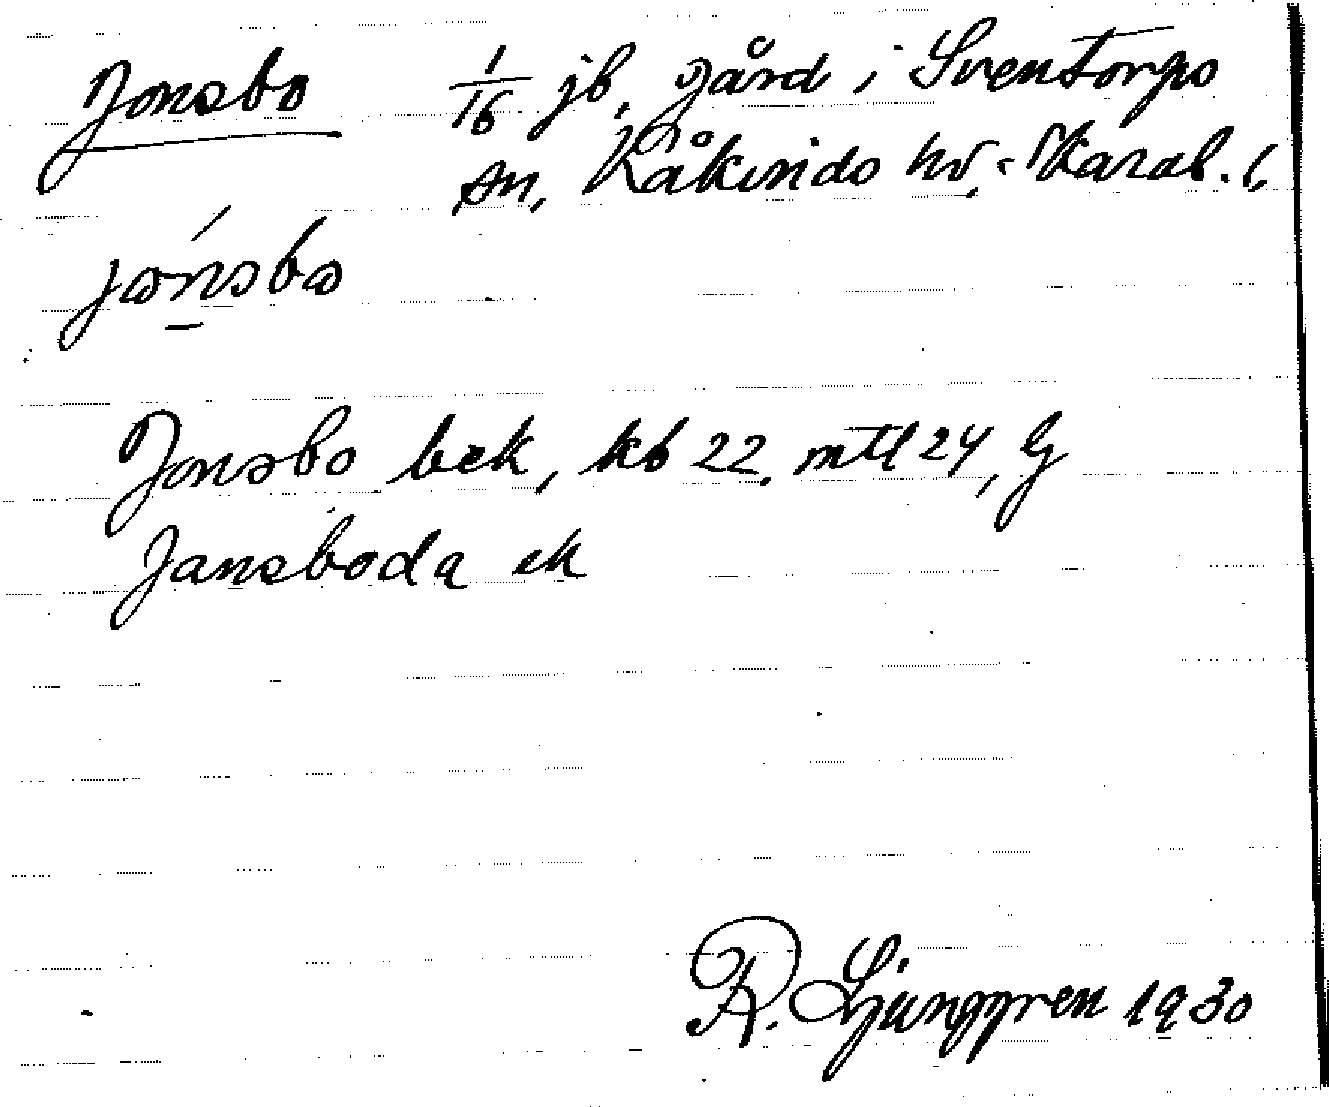 Jonsbo 1/16 jb. gård i Sventorps
sn, Kåkinds hd, Skarab. l.
jønsbo
Jonsbo bek, kb 22, mtl 24, G
Jansboda ek
R. Ljunggren 1930